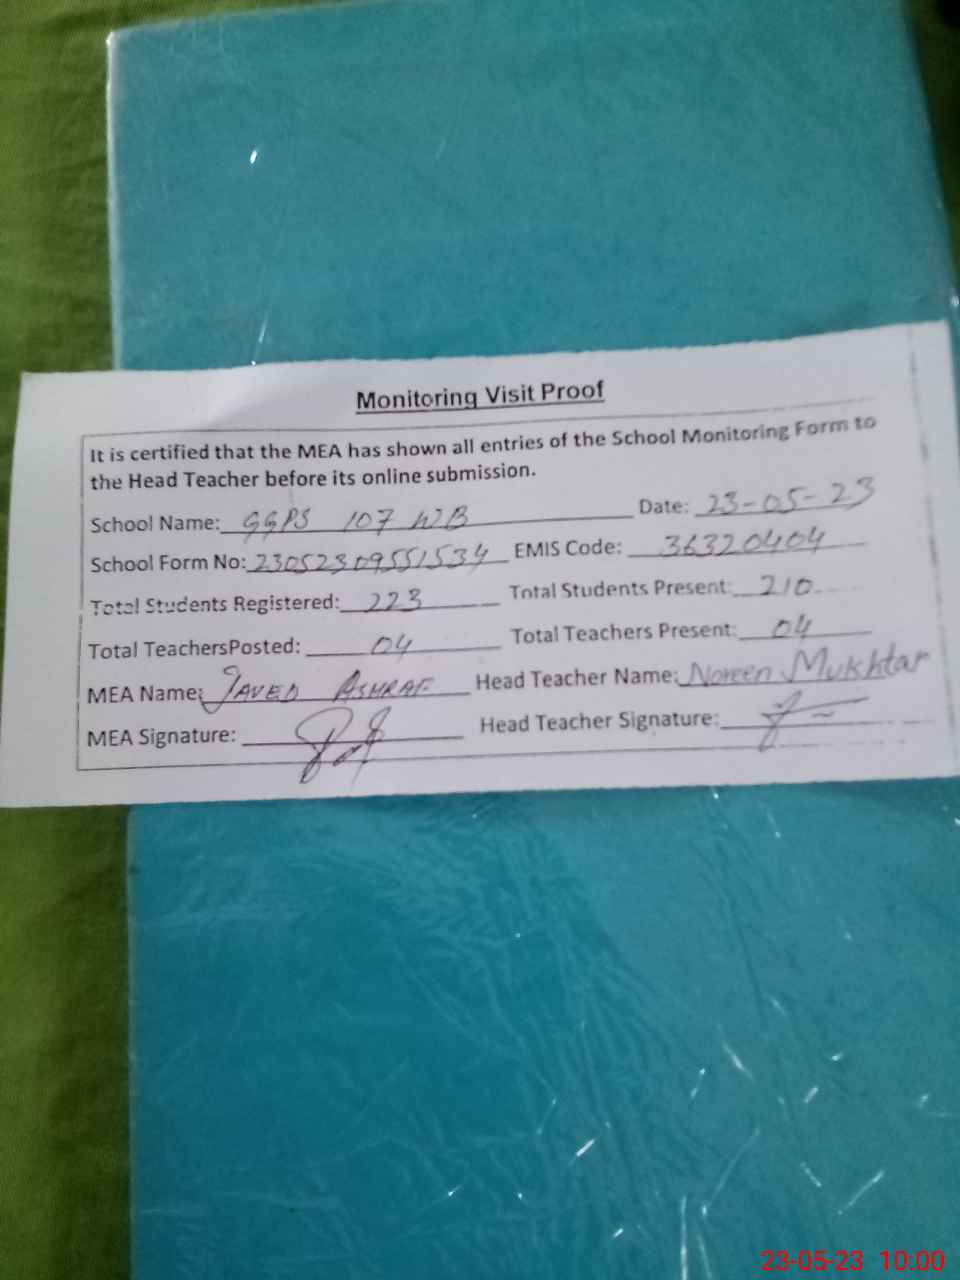 Monitoring Visit Proof
It is certified that the MEA has shown all entries of the School Monitoring Form to
the Head Teacher before its online submission.
School Name: GGPS 107 WB Date: 23-05-23
School Form No: 23052309551534 EMIS Code: 36320404
Total Students Registered: 223 Total Students Present: 210
Total TeachersPosted: 04 Total Teachers Present: 04
MEA Name: JAVED ASHRAF Head Teacher Name: Noreen Mukhtar
MEA Signature: Head Teacher Signature:
23-05-23 10:00